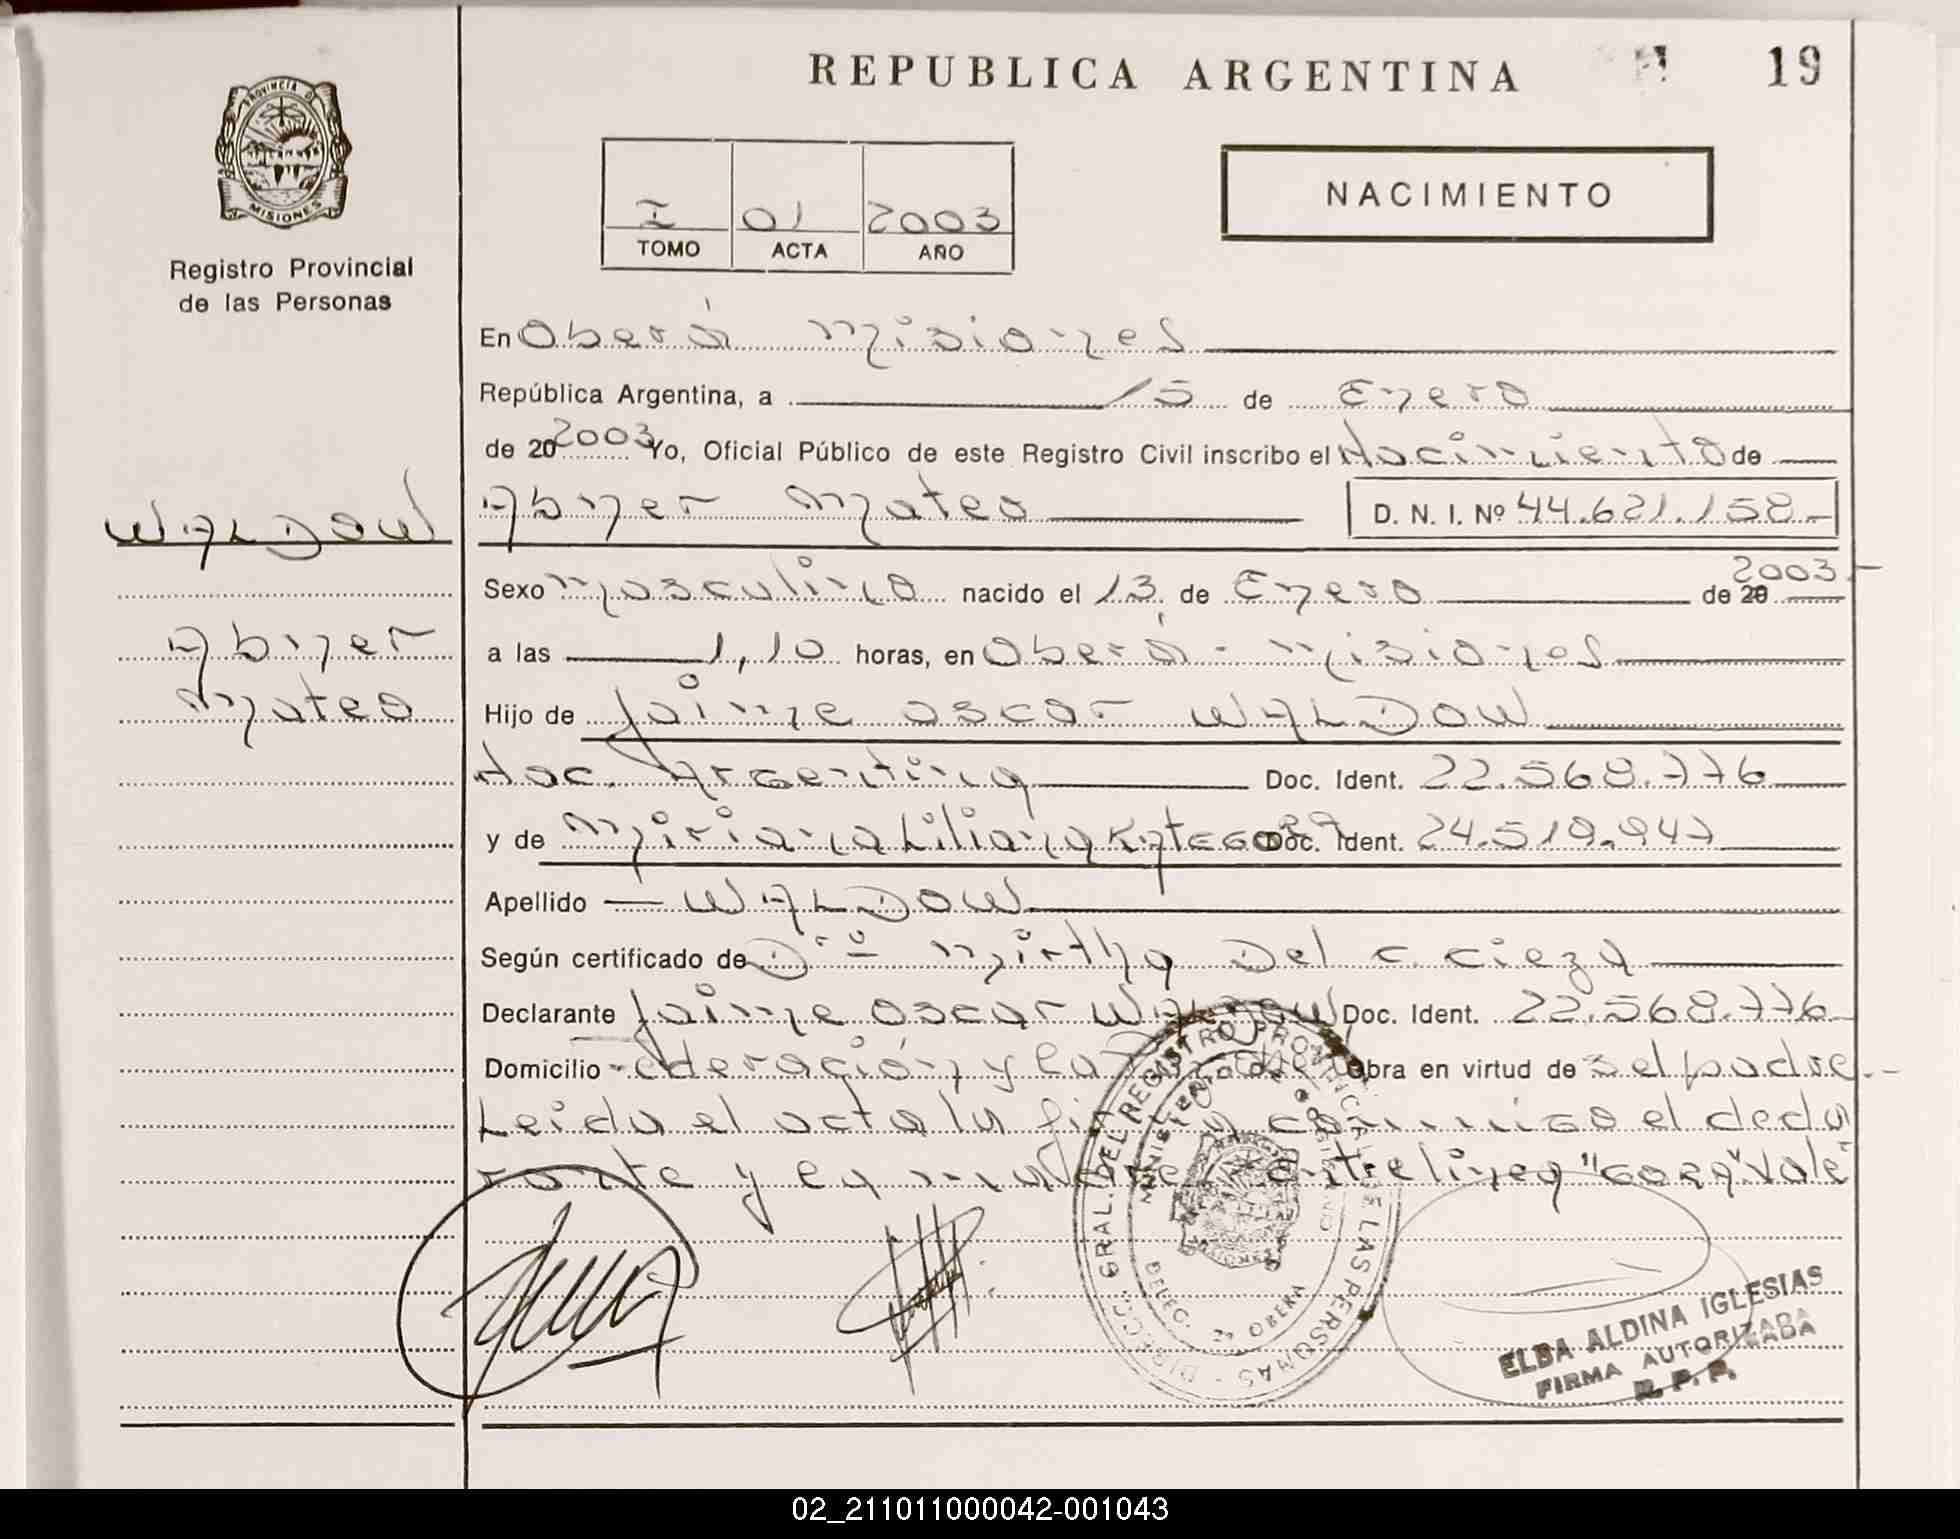 REPUBLICA ARGENTINA
19
PROVINCIA DE
MISIONES
Registro Provincial
de las Personas
I 01 2003
TOMO ACTA AÑO
NACIMIENTO
En Oberá Misiones
República Argentina, a 15 de Enero
de 20 2003 Yo, Oficial Público de este Registro Civil inscribo el Nacimiento de
WALDOW
Abner Mateo D. N. I. Nº 44.621.158.-
Sexo masculino nacido el 13 de Enero de 20 2003
Abner
a las 1,10 horas, en Oberá - Misiones
Mateo
Hijo de Jaime Oscar WALDOW
Nac. Argentina Doc. Ident. 22.568.776
y de Miriana Liliana Doc. Ident. 24.519.947
Apellido WALDOW
Según certificado de Drº Mirtha Del C. Cieza
Declarante Jaime Oscar WALDOW Doc. Ident. 22.568.776
Domicilio Obra en virtud de s el padre.-
Leida el acta la conmigo el decla
rante y la madre entrelinea "Vale"
DIRECC. GRAL. DEL REGISTRO PROVINCIAL DE LAS PERSONAS
MINISTERIO DE
DELEC. 2º OBERA
ELBA ALDINA IGLESIAS
FIRMA AUTORIZADA
R. P. P.
02_211011000042-001043